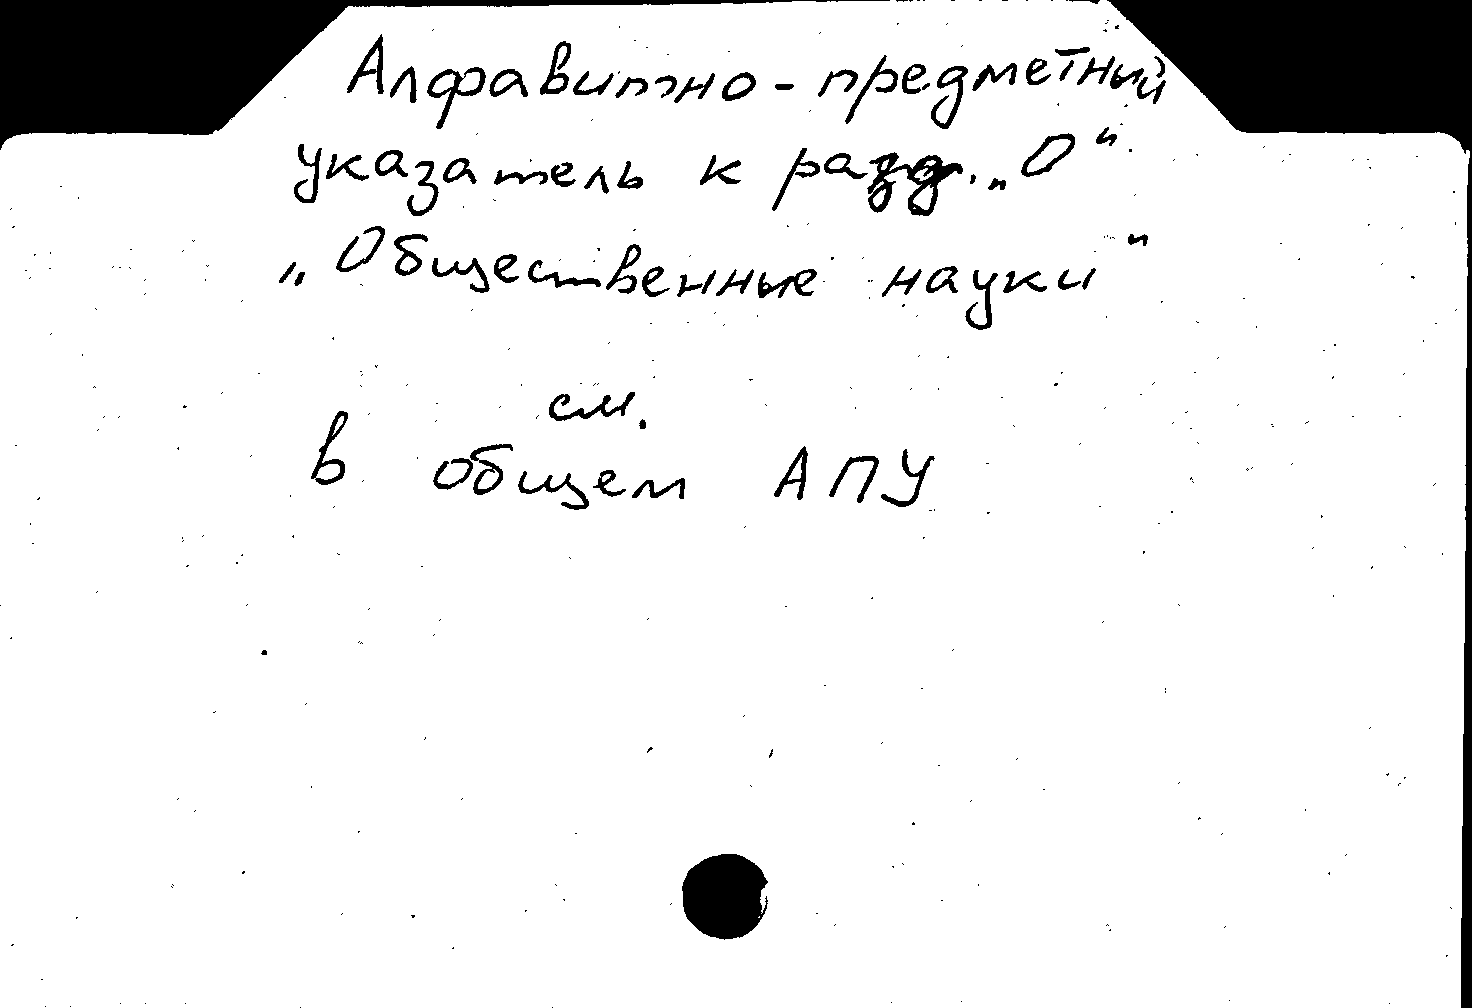 Алфавитно-предметный
указатель к разд. „О“
„Общественные науки“
см.
в общем АПУ